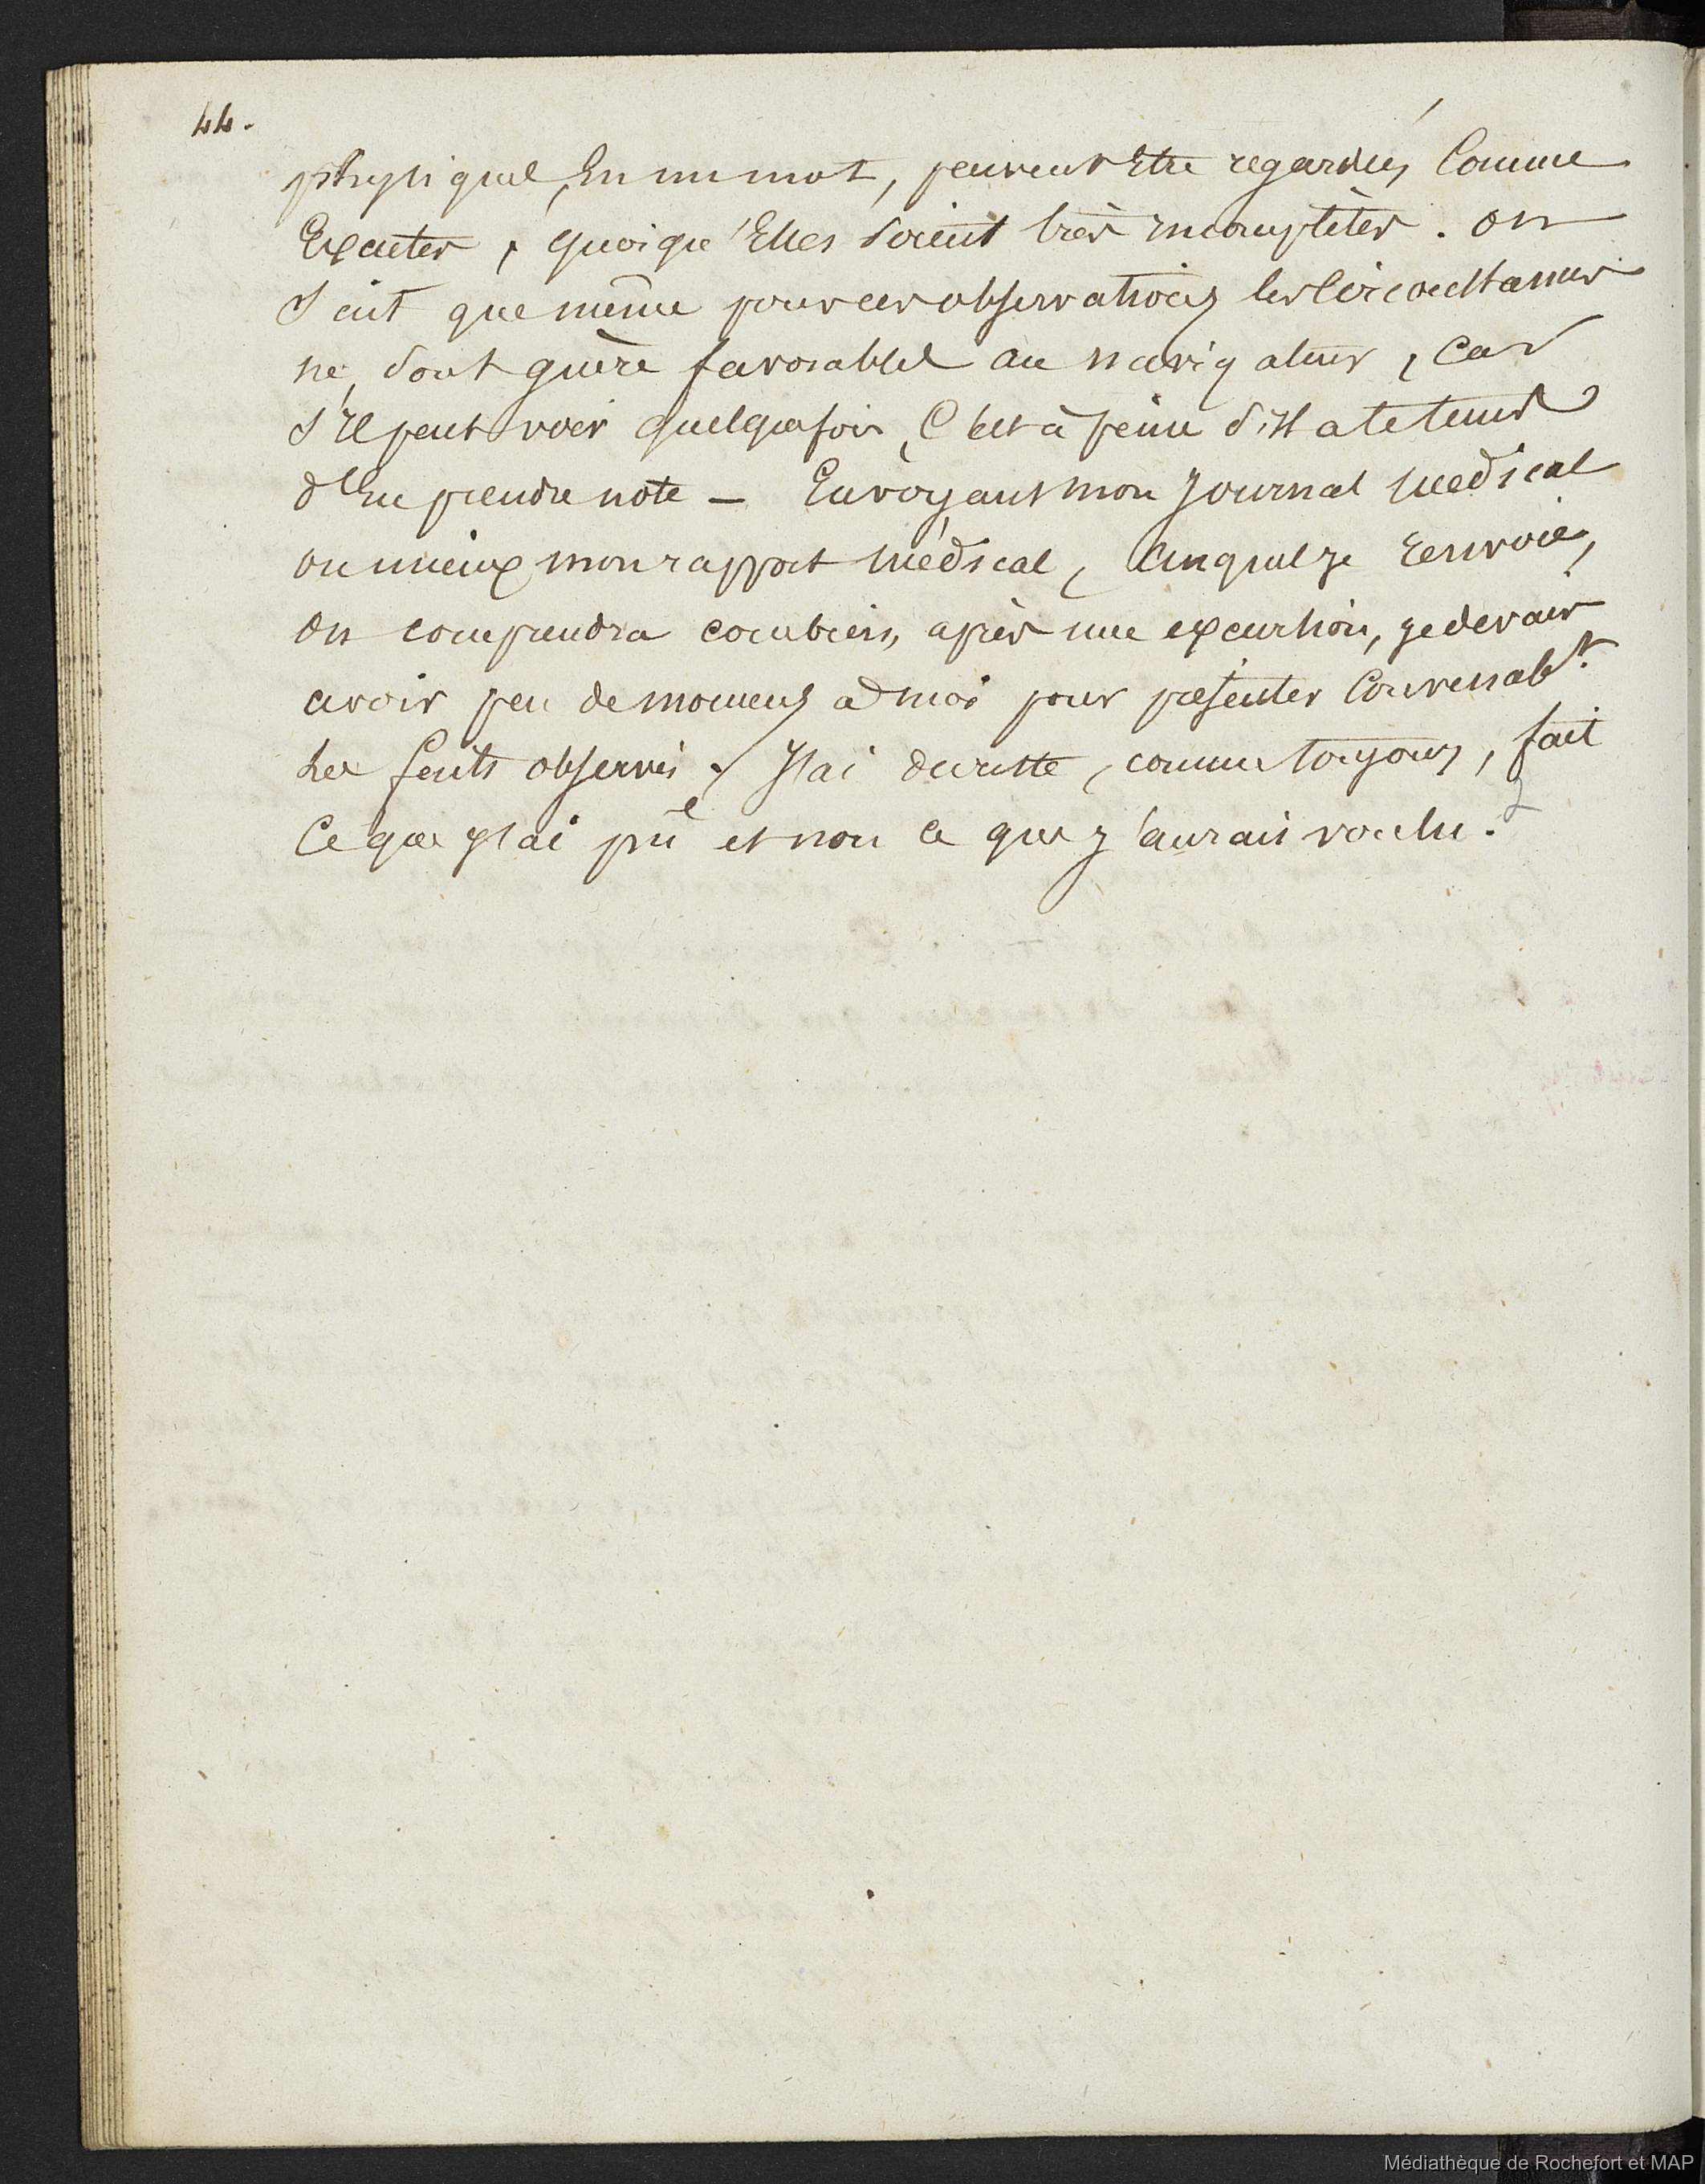 44.
physiques, en un mot, peuvent être regardées comme
Exactes, quoiqu'Elles soient très incomplètes. on
sait que même pour ces observations les circonstances
ne sont guère favorables au navigateur, car
s'il peut voir quelquefois, c'est à peine s'il a le temps
d'En prendre note - Envoyant mon journal médical
ou mieux mon rapport médical, auquel je renvoie,
on comprendra combien, après une excursion, je devais
avoir peu de momens à moi pour présenter convenabt.
les faits observés. J'ai du reste, comme toujours, fait
Ce que j'ai pu et non ce que j'aurais voulu.
Médiathèque de Rochefort et MAP